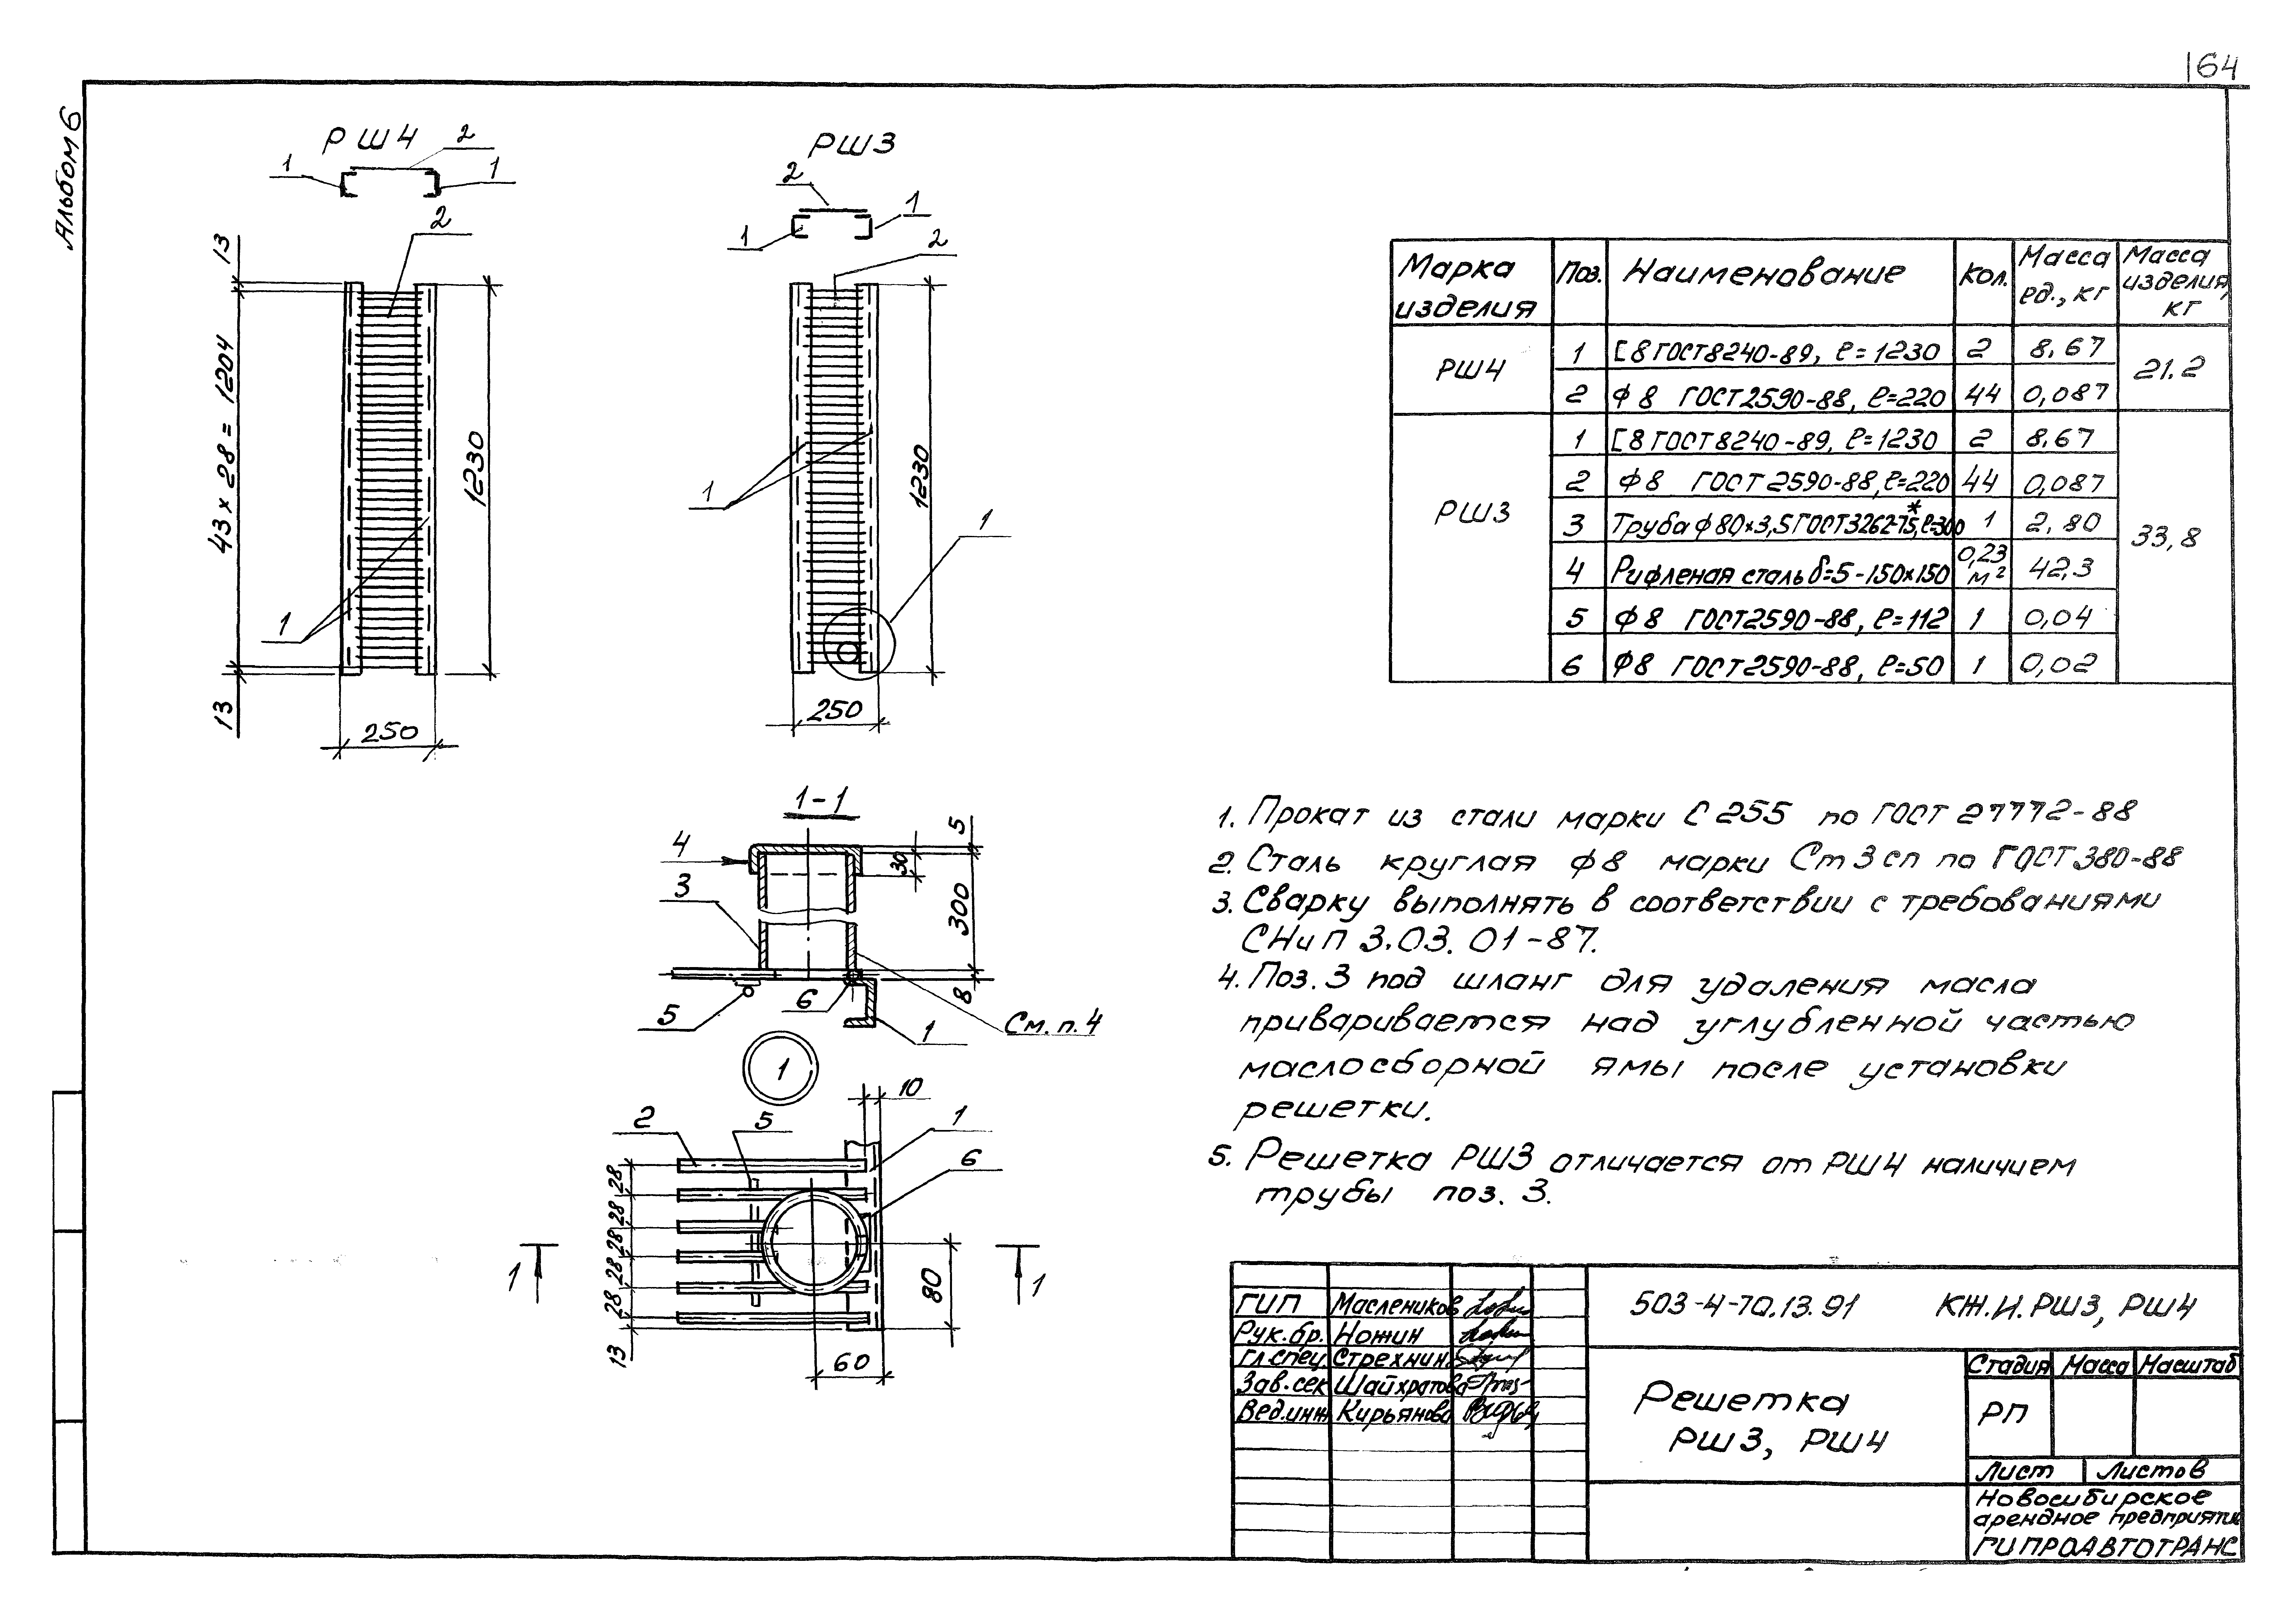 164
Альбом 6
РШ4
2
1
1
2
13
43 × 28 = 1204
1230
1
13
250
РШ3
2
1
1
2
1
1230
1
250
Марка изделия
Поз.
Наименование
Кол.
Масса ед., кг
Масса изделия, кг
РШ4
1 [8 ГОСТ 8240-89, ℓ=1230 2 8.67
21.2
2 Ф8 ГОСТ 2590-88, ℓ=220 44 0,087
РШ3
1 [8 ГОСТ 8240-89, ℓ=1230 2 8.67
2 Ф8 ГОСТ 2590-88, ℓ=220 44 0,087
3 Труба ф80×3,5 ГОСТ 3262-75*, ℓ=300 1 2.80
33,8
4 Рифленая сталь δ=5-150×150 0,23 м² 42,3
5 Ф8 ГОСТ 2590-88, ℓ=112 1 0,04
6 Ф8 ГОСТ 2590-88, ℓ=50 1 0,02
1-1
4
3
5
30
300
8
5
6
1
См. п. 4
1
10
2
5
1
6
28
28
28
28
28
13
1
1
80
60
1. Прокат из стали марки С255 по ГОСТ 27772-88
2. Сталь круглая ф8 марки Ст3сп по ГОСТ 380-88
3. Сварку выполнять в соответствии с требованиями
СНиП 3.03.01-87.
4. Поз. 3 под шланг для удаления масла
приваривается над углубленной частью
маслосборной ямы после установки
решетки.
5. Решетка РШ3 отличается от РШ4 наличием
трубы поз. 3.
ГИП Маслеников
Рук.бр. Ножин
Гл.спец. Стрехнин
Зав.сек Шайхратова
Вед.инж Кирьянова
503-4-70.13.91 КЖ.И.РШ3, РШ4
Решетка
РШ3, РШ4
Стадия Масса Масштаб
РП
Лист Листов
Новосибирское
арендное предприятие
ГИПРОАВТОТРАНС